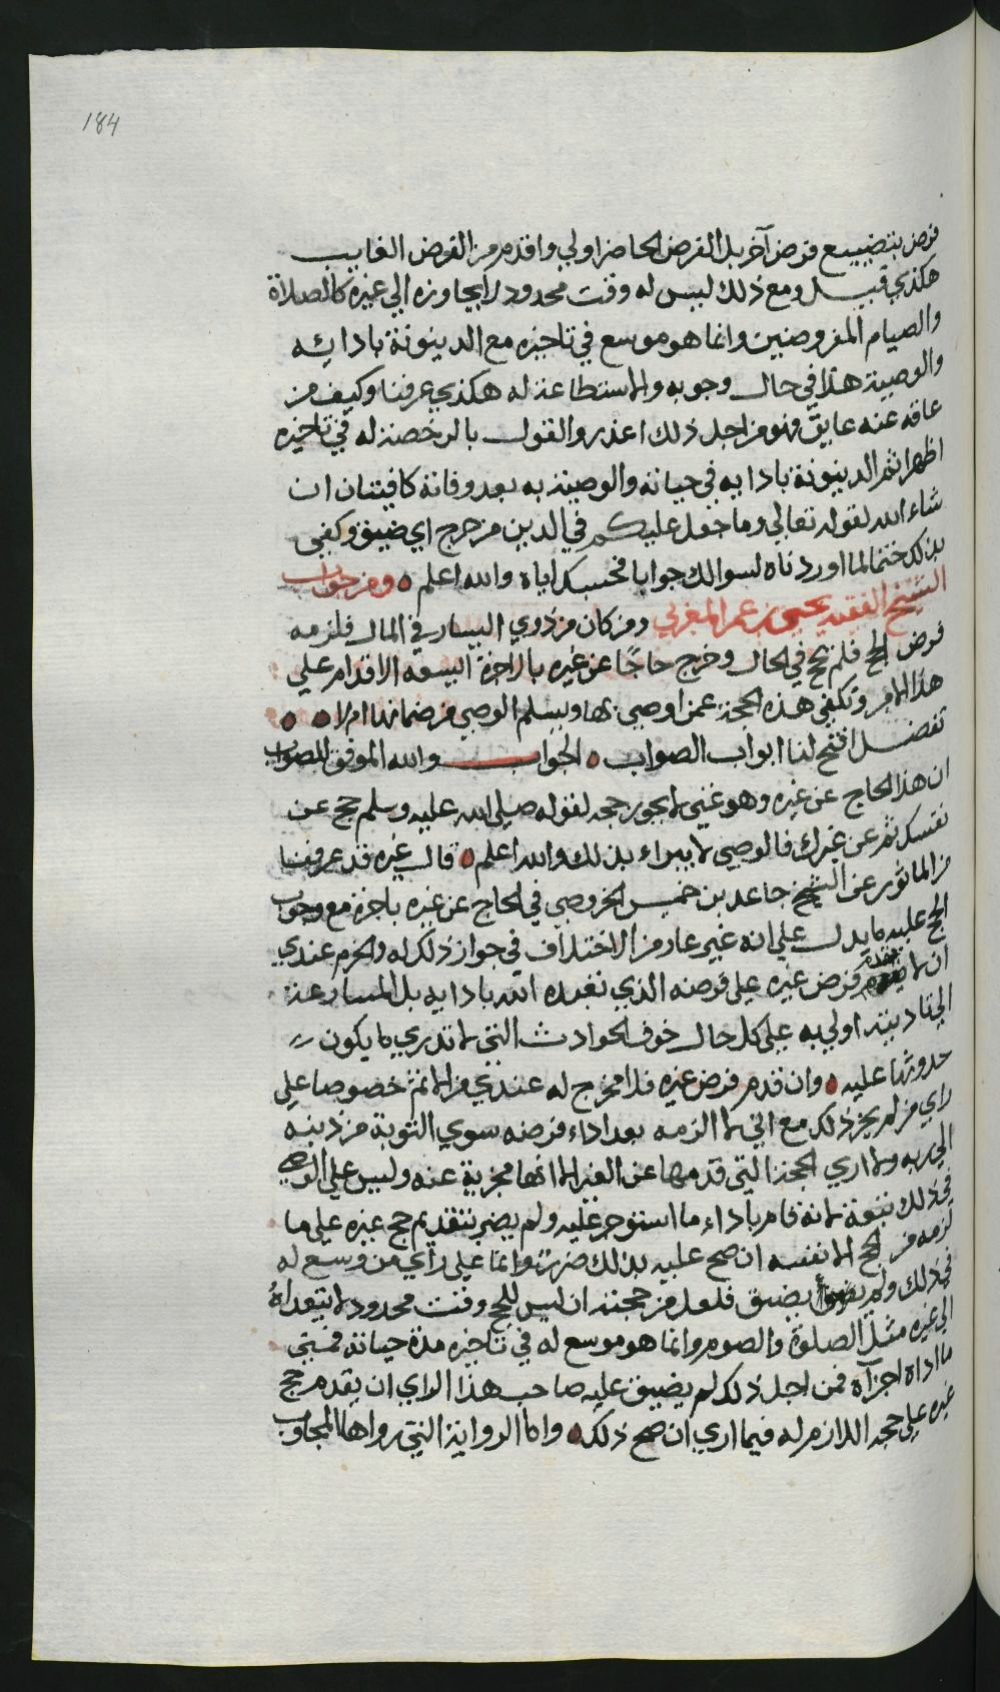 184
فرض بتضييع فرض آخر بل الفرض الحاضر اولي واقدم من الفرض الغايب
هكذي قيل ومع ذلك ليس له وقت محدود لا يجاوزه الي غيره كالصلاة
والصيام المفروضين وانما هو موسع في تاخيره مع الدينونة بادائه
والوصية هذا في حال وجوبه والاستطاعة له هكذي عرفنا وكيف من
عاقه عنه عايق فهو من اجل ذلك اعذر والقول بالرخصة له في تاخيره
اظهر ثم الدينونة بادايه في حياته والوصية به بعد وفاته كافيتان ان
شاء الله لقوله تعالي وما جعل عليكم في الدين من حرج اي ضيق وكفي
بذلك ختما لما اوردناه لسوالك جوابا فحسبك اياه والله اعلم ومن جواب
الشيخ الفقيه يحيي بن عمر المغربي ومن كان من ذوي اليسار في المال فلزمه
فرض الحج فلم يحج في الحال وخرج حاجا عن غيره بالاجرة ايسعه الاقدام علي
هذا الامر وتكفي هذه الحجة عمن اوصي بها ويسلم الوصي من ضمانها ام لا
تفضل افتح لنا ابواب الصواب الجواب والله الموفق للصواب
ان هذا الحاج عن غيره وهو غني لا يجوز حجه لقوله صلي الله عليه وسلم حج عن
نفسك ثم عن غيرك فالوصي لا يبراء بذلك والله اعلم قال غيره قد عرفنا
من الماثور عن الشيخ جاعد بن خميس الخروصي في الحاج عن غيره باجرة مع وجوب
الحج عليه ما يدل علي انه غير عار من الاختلاف في جواز ذلك له والحزم عندي
ان لا يقدم فرض غيره علي فرضه الذي تعبده الله بادايه بل المسارعة
الي تاديته اولي به علي كل حال خوف الحوادث التي لا تدري ما يكون
حدوثها عليه وان قدم فرض غيره فلا مخرج له عندي من الاثم خصوصا علي
راي من لم يجز ذلك مع اني لا الزمه بعد اداء فرضه سوي التوبة من ذنبه
الي ربه ولا اري الحجة التي قدمها عن الغير الا انها مجزية عنه وليس علي الوصي
في ذلك تبعة لانه قام باداء ما استوجر عليه ولم يضر بتقديم حج غيره علي ما
لزمه من الحج الا نفسه ان صح عليه بذلك ضرر واما علي راي من وسع له
في ذلك ولم يضيق فلعل من حجته ان ليس للحج وقت محدود لا يتعداه
الي غيره مثل الصلوة والصوم وانما هو موسع له في تاخيره مدة حياته فمتي
ما اداه اجزآه فمن اجل ذلك لم يضيق عليه صاحب هذا الراي ان يقدم حج
غيره علي حجه اللازم له فيما اري ان صح ذلك واما الرواية التي رواها المجاوب